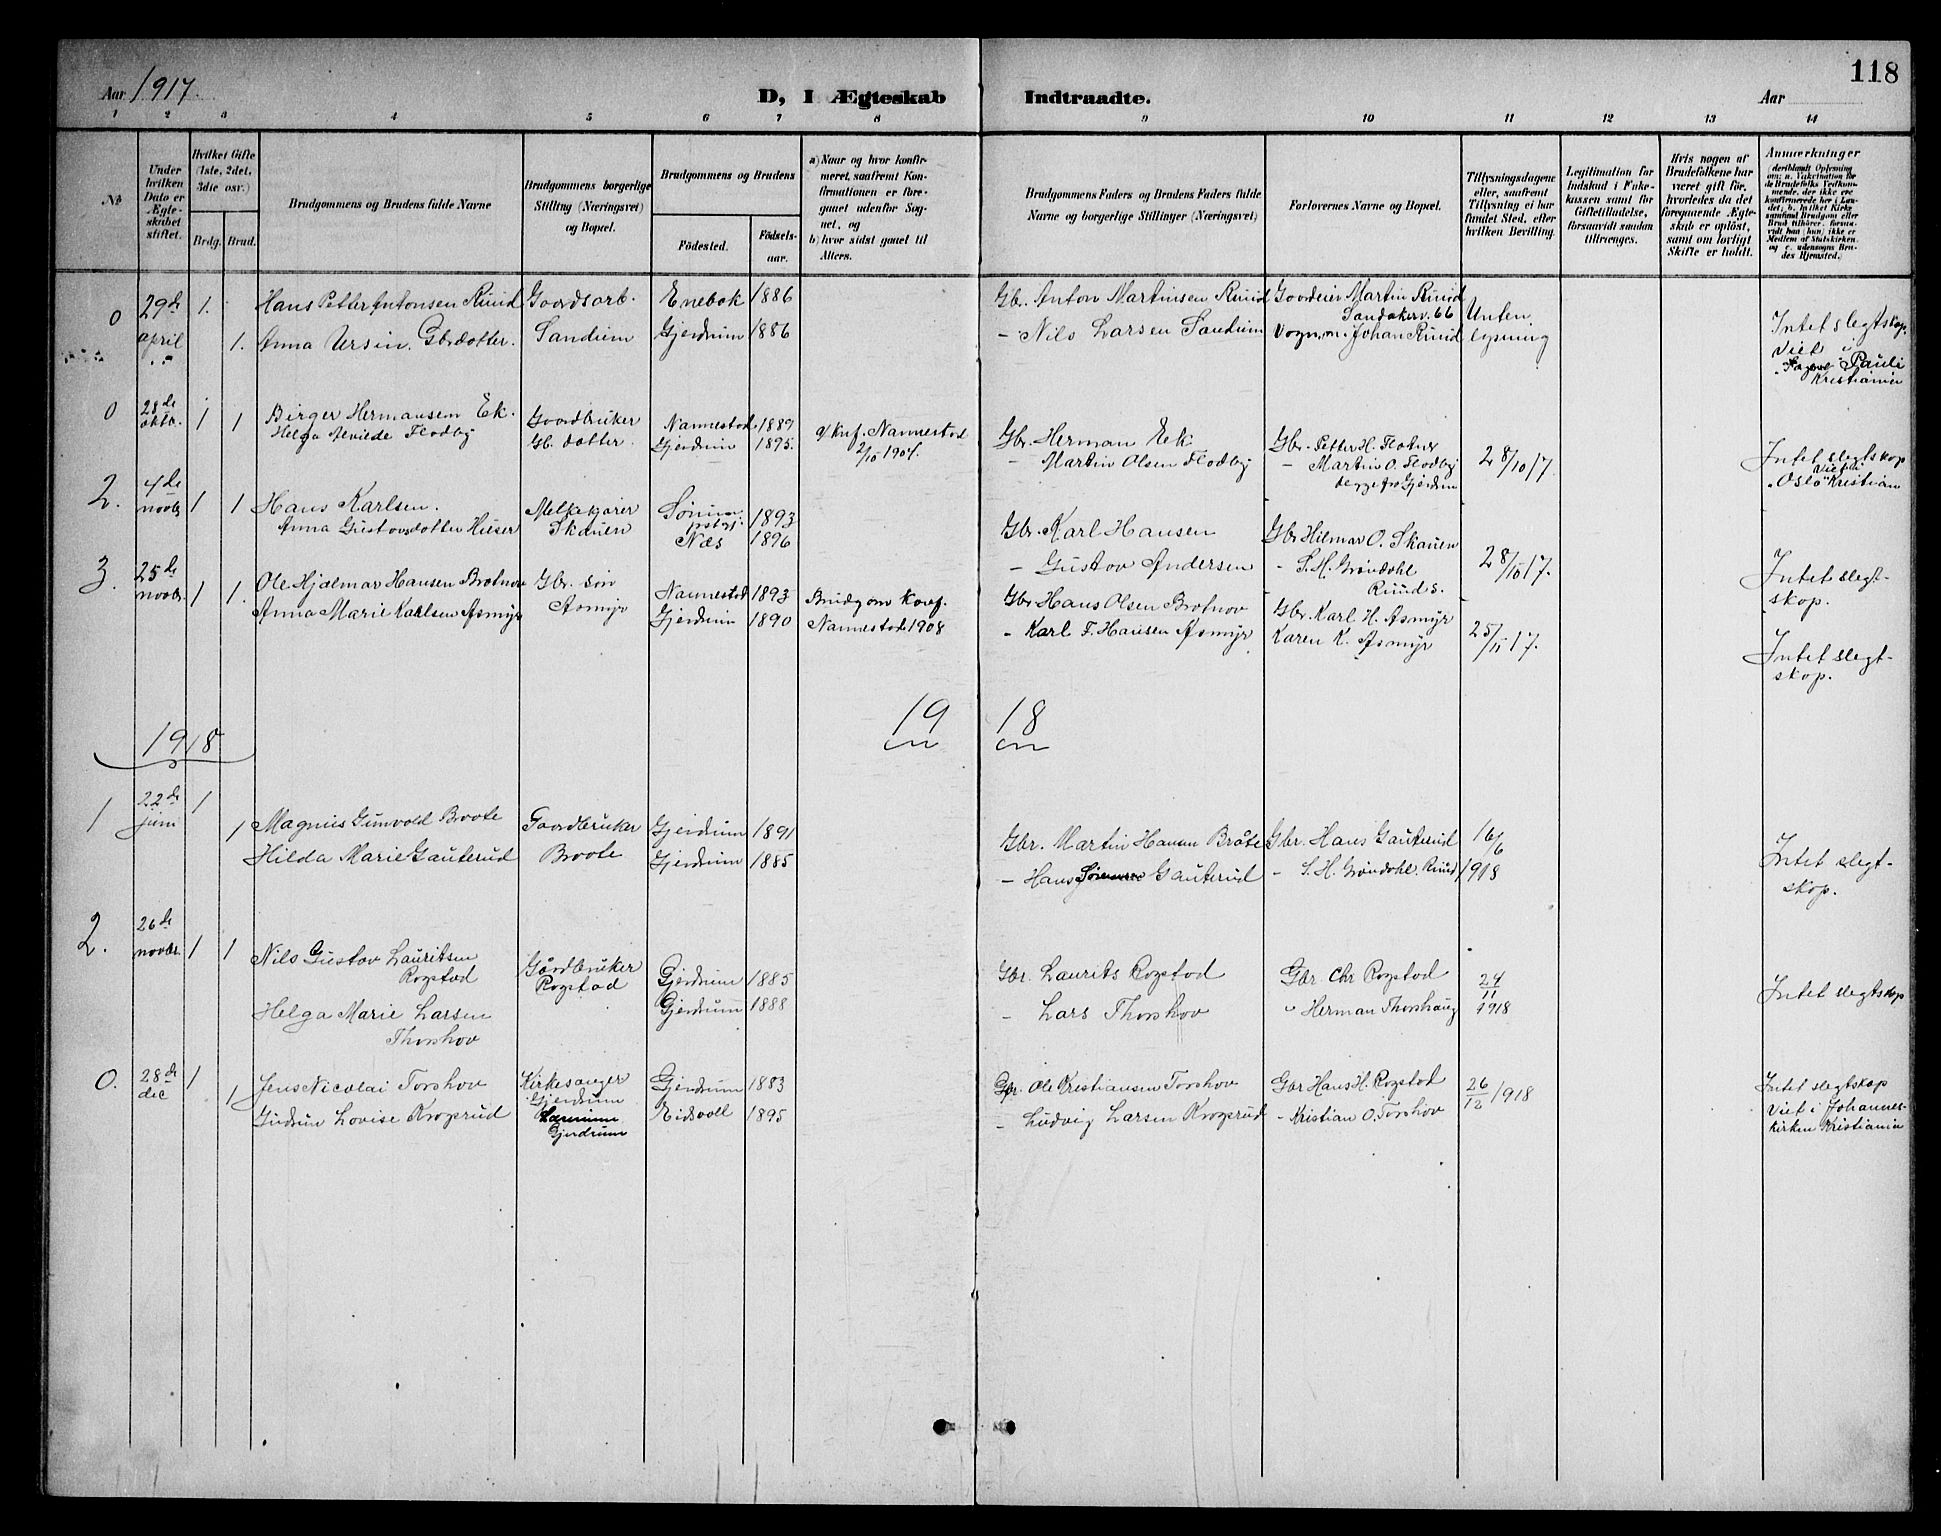 Aar 1917.
D, I Ægteskab Indtraadte.
Aar
118
1 2 3 4 5 6 7 8 9 10 11 12 13 14
No
Under hvilken Dato er Ægteskabet stiftet.
Hvilket Gifte (1ste, 2det, 3die osv.)
Brdg. Brud.
Brudgommens og Brudens fulde Navne
Brudgommens borgerlige Stilling (Næringsvei) og Bopæl.
Brudgommens og Brudens
Fødested. Fødsels-aar.
a) Naar og hvor konfirmeret, saafremt Konfirmationen er foregaaet udenfor Sognet, og
b) hvor sidst gaaet til Alters.
Brudgommens Faders og Brudens Faders fulde Navne og borgerlige Stillinger (Næringsvei)
Forlovernes Navne og Bopæl.
Tillysningsdagene eller, saafremt Tillysning ei har fundet Sted, efter hvilken Bevilling.
Legitimation for Indskud i Enkekassen samt for Giftetilladelse, forsaavidt saadan tiltrænges.
Hvis nogen af Brudefolkene har været gift før, hvorledes da det foregaaende Ægteskab er opløst, samt om lovligt Skifte er holdt.
Anmærkninger (deriblandt Oplysning om: a. Vakcination for de Brudefolks Vedkommende, der ikke ere konfirmerede her i Landet; b. hvilket Kirkesamfund Brudgom eller Brud tilhører, forsaavidt han (hun) ikke er Medlem af Statskirken, og c. udensogns Brudes Hjemsted.)
0 29de 1. Hans Petter Antonsen Ruud Gaardsarb. Enebak 1886 Gbr. Anton Martinsen Ruud Gaardeier Martin Ruud
Sandakerv. 66 Uten Intet slegtskap.
april 1. Anna Ursin. Gbrdatter. Sandum Gjerdrum 1886 - Nils Larsen Sandum Vognm. Johan Ruud lysning Viet i
Pauli
Kristiania
0 28de oktb. 1 1 Birger Hermansen Ek. Gaardbruker Nannestad 1889 g/ Knf. Nannestad Gbr. Herman Eek Gbr. Petter H. Flatner 28/10 17. Intet slegtskap
Helga Alvilde Flodby Gb. datter. Gjerdrum 1895. 2/10 1904. - Martin Olsen Flodby - Martin O. Flodby Viet i
begge fra Gjerdrum "Oslo" Kristian
2. 4de novbr 1 1 Hans Karlsen. Melkekjører Sørum 1893 Gbr. Karl Hansen Gbr Hilmar O. Skauen 28/10 17. Intet slegtskap.
Anna Gustavsdatter Huser Skauen Næs 1896 - Gustav Andersen - S. H. Grøndahl
Ruud s.
3. 25de novbr. 1 1. Ole Hjalmar Hansen Bratnov Gbr. søn Nannestad 1893 Brudgom konf. Gbr Hans Olsen Bratnov Gbr. Karl H. Asmyr 25/11 17. Intet slegtskap.
Anna Marie Karlsen Asmyr Asmyr Gjerdrum 1890 Nannestad 1908 - Karl F. Hansen Asmyr Karen K. Asmyr
19 18
1918
1 22de juni 1 Magnus Gunvald Braate Gaardbruker Gjerdrum 1891 Gbr. Martin Hansen Bråte Gbr. Hans Gauterud 16/6
1 Hilda Marie Gauterud Braate Gjerdrum 1885 - Hans Sørensen Gauterud - S. H. Grøndahl. Ruud 1918 Intet slegtskap.
2. 26de novbr. 1 1 Nils Gustav Lauritsen Gårdbruker
Rogstad Rogstad Gjerdrum 1885 Gbr. Laurits Rogstad Gbr. Chr Rogstad 24/11 1918 Intet slegtskap
Helga Marie Larsen Gjerdrum 1888 - Lars Thorshov " Herman Thorshaug
Thorshov
0. 28de dec 1 Jens Nicolai Torshov Kirkesanger Gjerdrum 1883 Gbr. Ole Kristiansen Torshov Gbr Hans H. Rogstad 26/12 1918 Intet slegtskap
Gjerdrum Viet i Johannes-
1 Gudrun Lovise Krogsrud Eidsvoll 1895 - Ludvig Larsen Krogsrud - Kristian O. Torshov kirken Kristiania
Gjerdrum